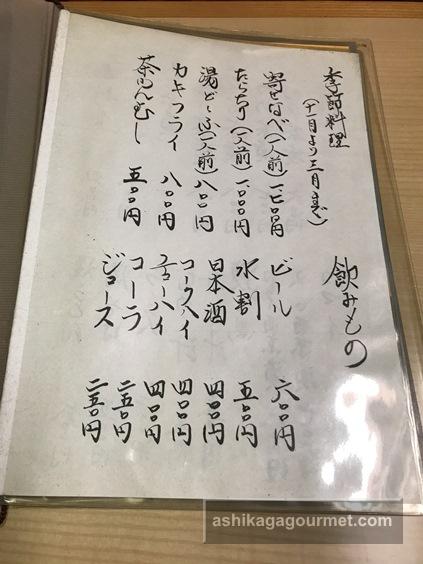 季節料理
(十一月より三月まで)
寄せなべ(一人前)一、二〇〇円
たらちり(一人前)一、〇〇〇円
湯どうふ(一人前)八〇〇円
カキフライ 八〇〇円
茶わんむし 五〇〇円
飲みもの
ビール 六〇〇円
水割 五〇〇円
日本酒 四〇〇円
コークハイ 四〇〇円
チューハイ 四〇〇円
コーラ 二五〇円
ジュース 二五〇円
ashikagagourmet.com